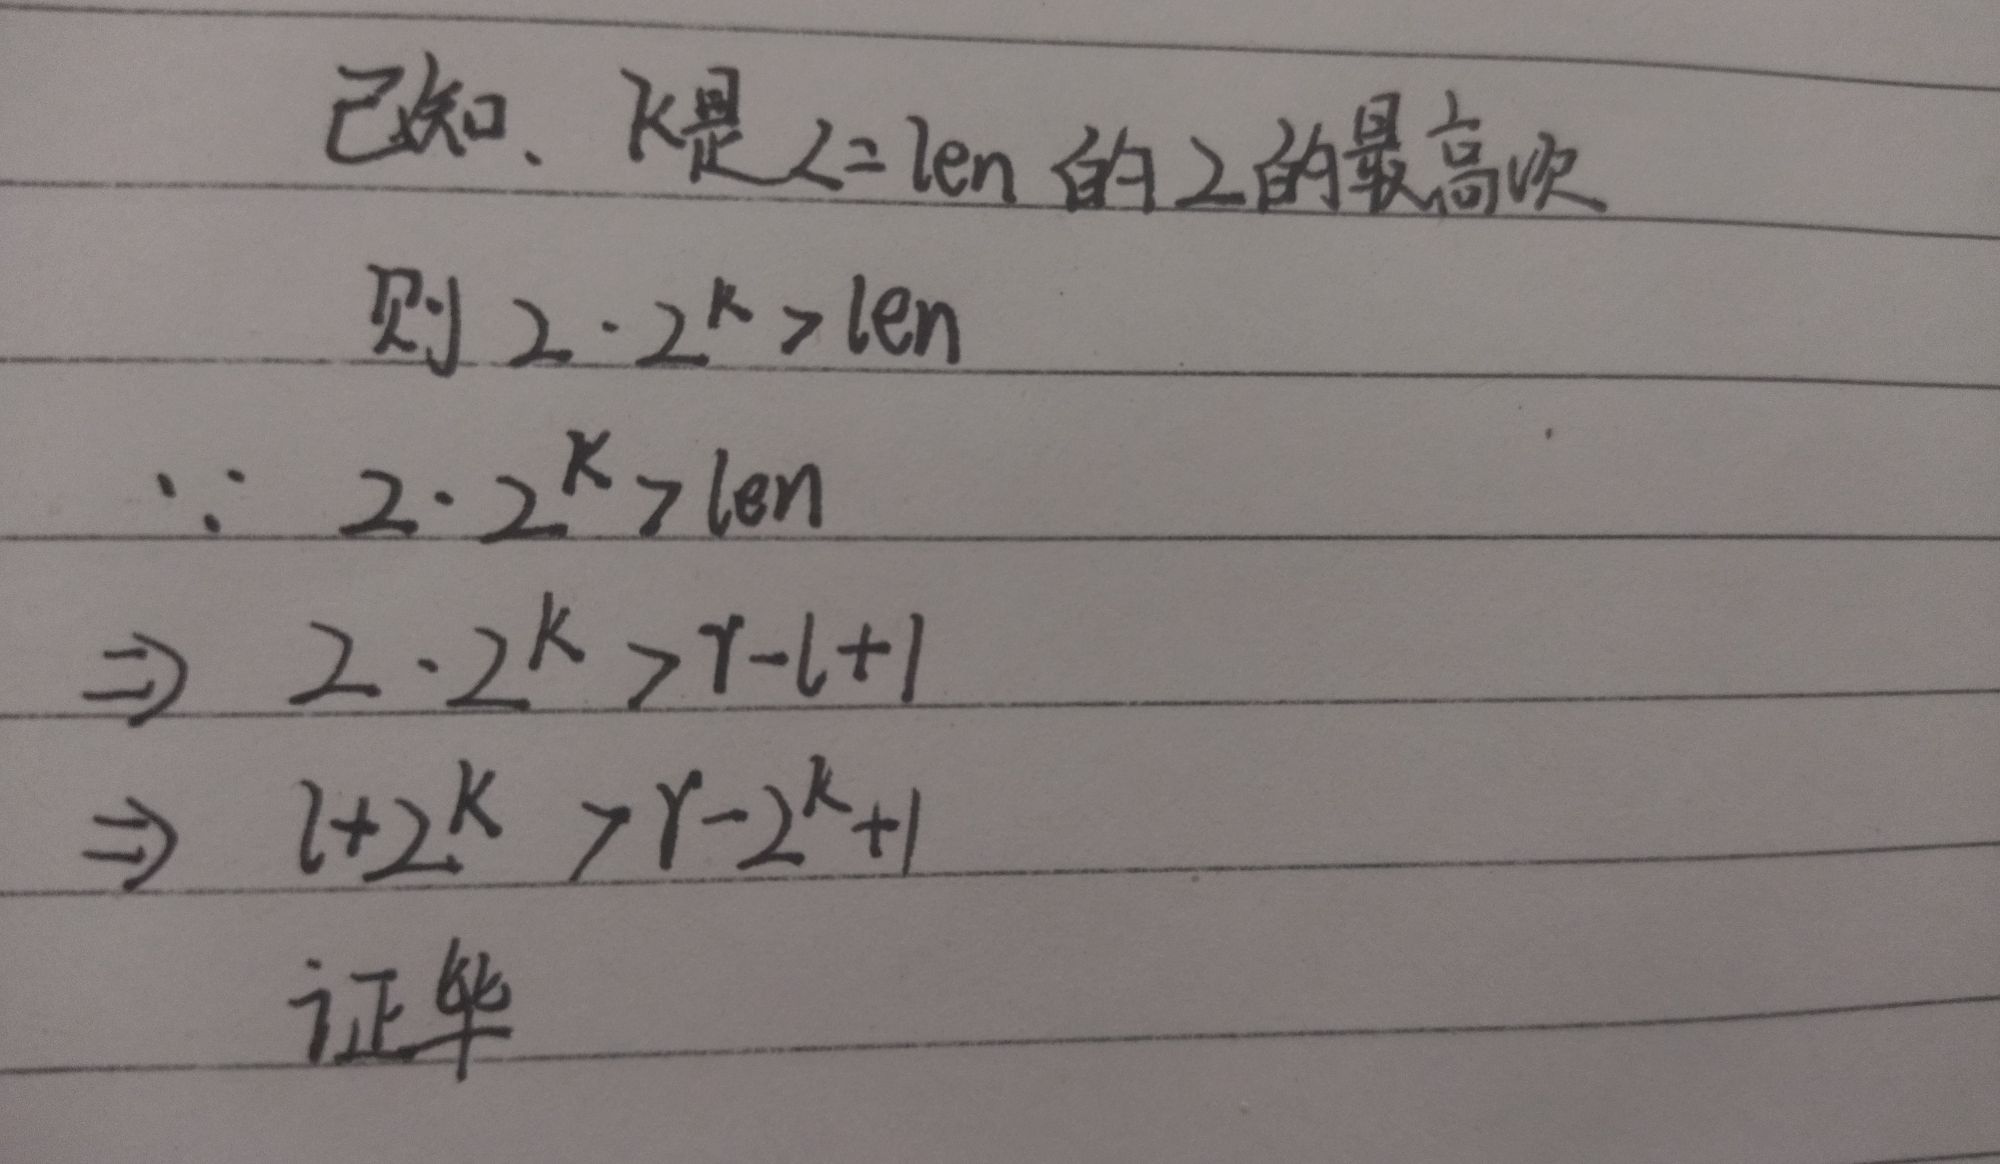 已知、k是<=len 的2的最高次
则 2·2^k>len
∵ 2·2^k>len
⇒ 2·2^k>r-l+1
⇒ l+2^k >r-2^k+1
证毕